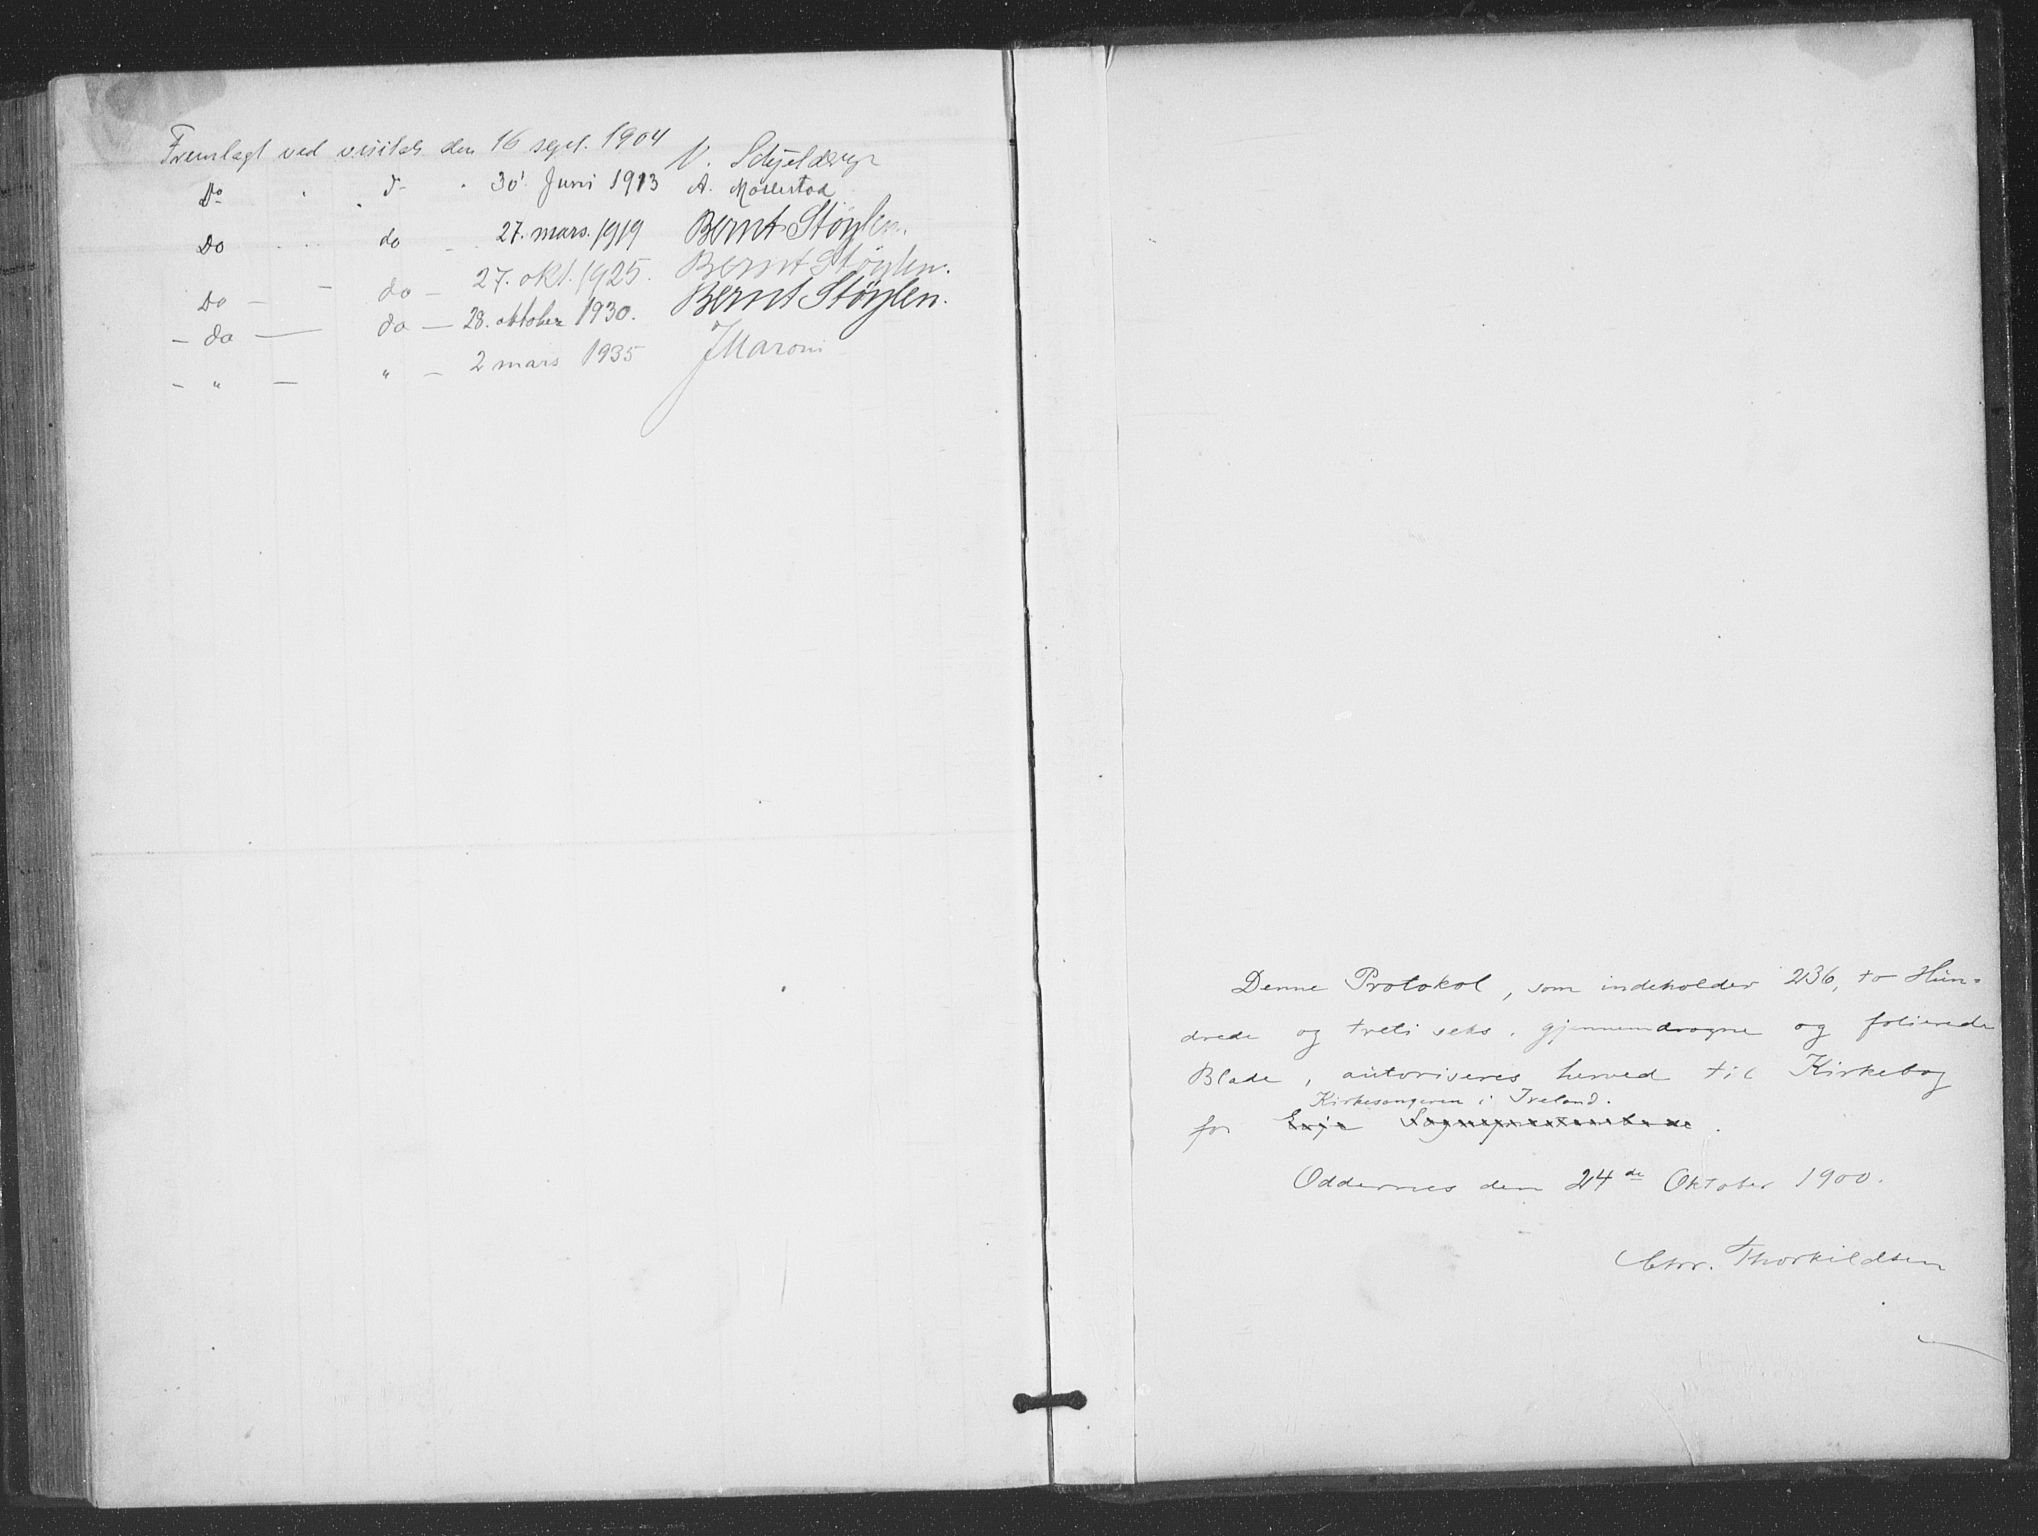 Fremlagt ved visitats den 16 sept. 1904 V. Schjelderup
Do " do " 30' Juni 1913 A. Mosestad
Do " " do - 27. mars. 1919 Bernt Støylen.
Do - - do - 27. okt. 1925. Bernt Støylen.
- do - do - 28. oktober 1930. Bernt Støylen.
- " - " - 2 mars 1935 JMaroni
Denne Protokol, som indeholder 236, to Hun-
drede og treti seks, gjennemdragne og folierede
Blade, autoriseres herved til Kirkebog
Kirkesangeren i Iveland.
for Evje Sogneprestembede.
Oddernes den 24de Oktober 1900.
Chr. Thorkildsen